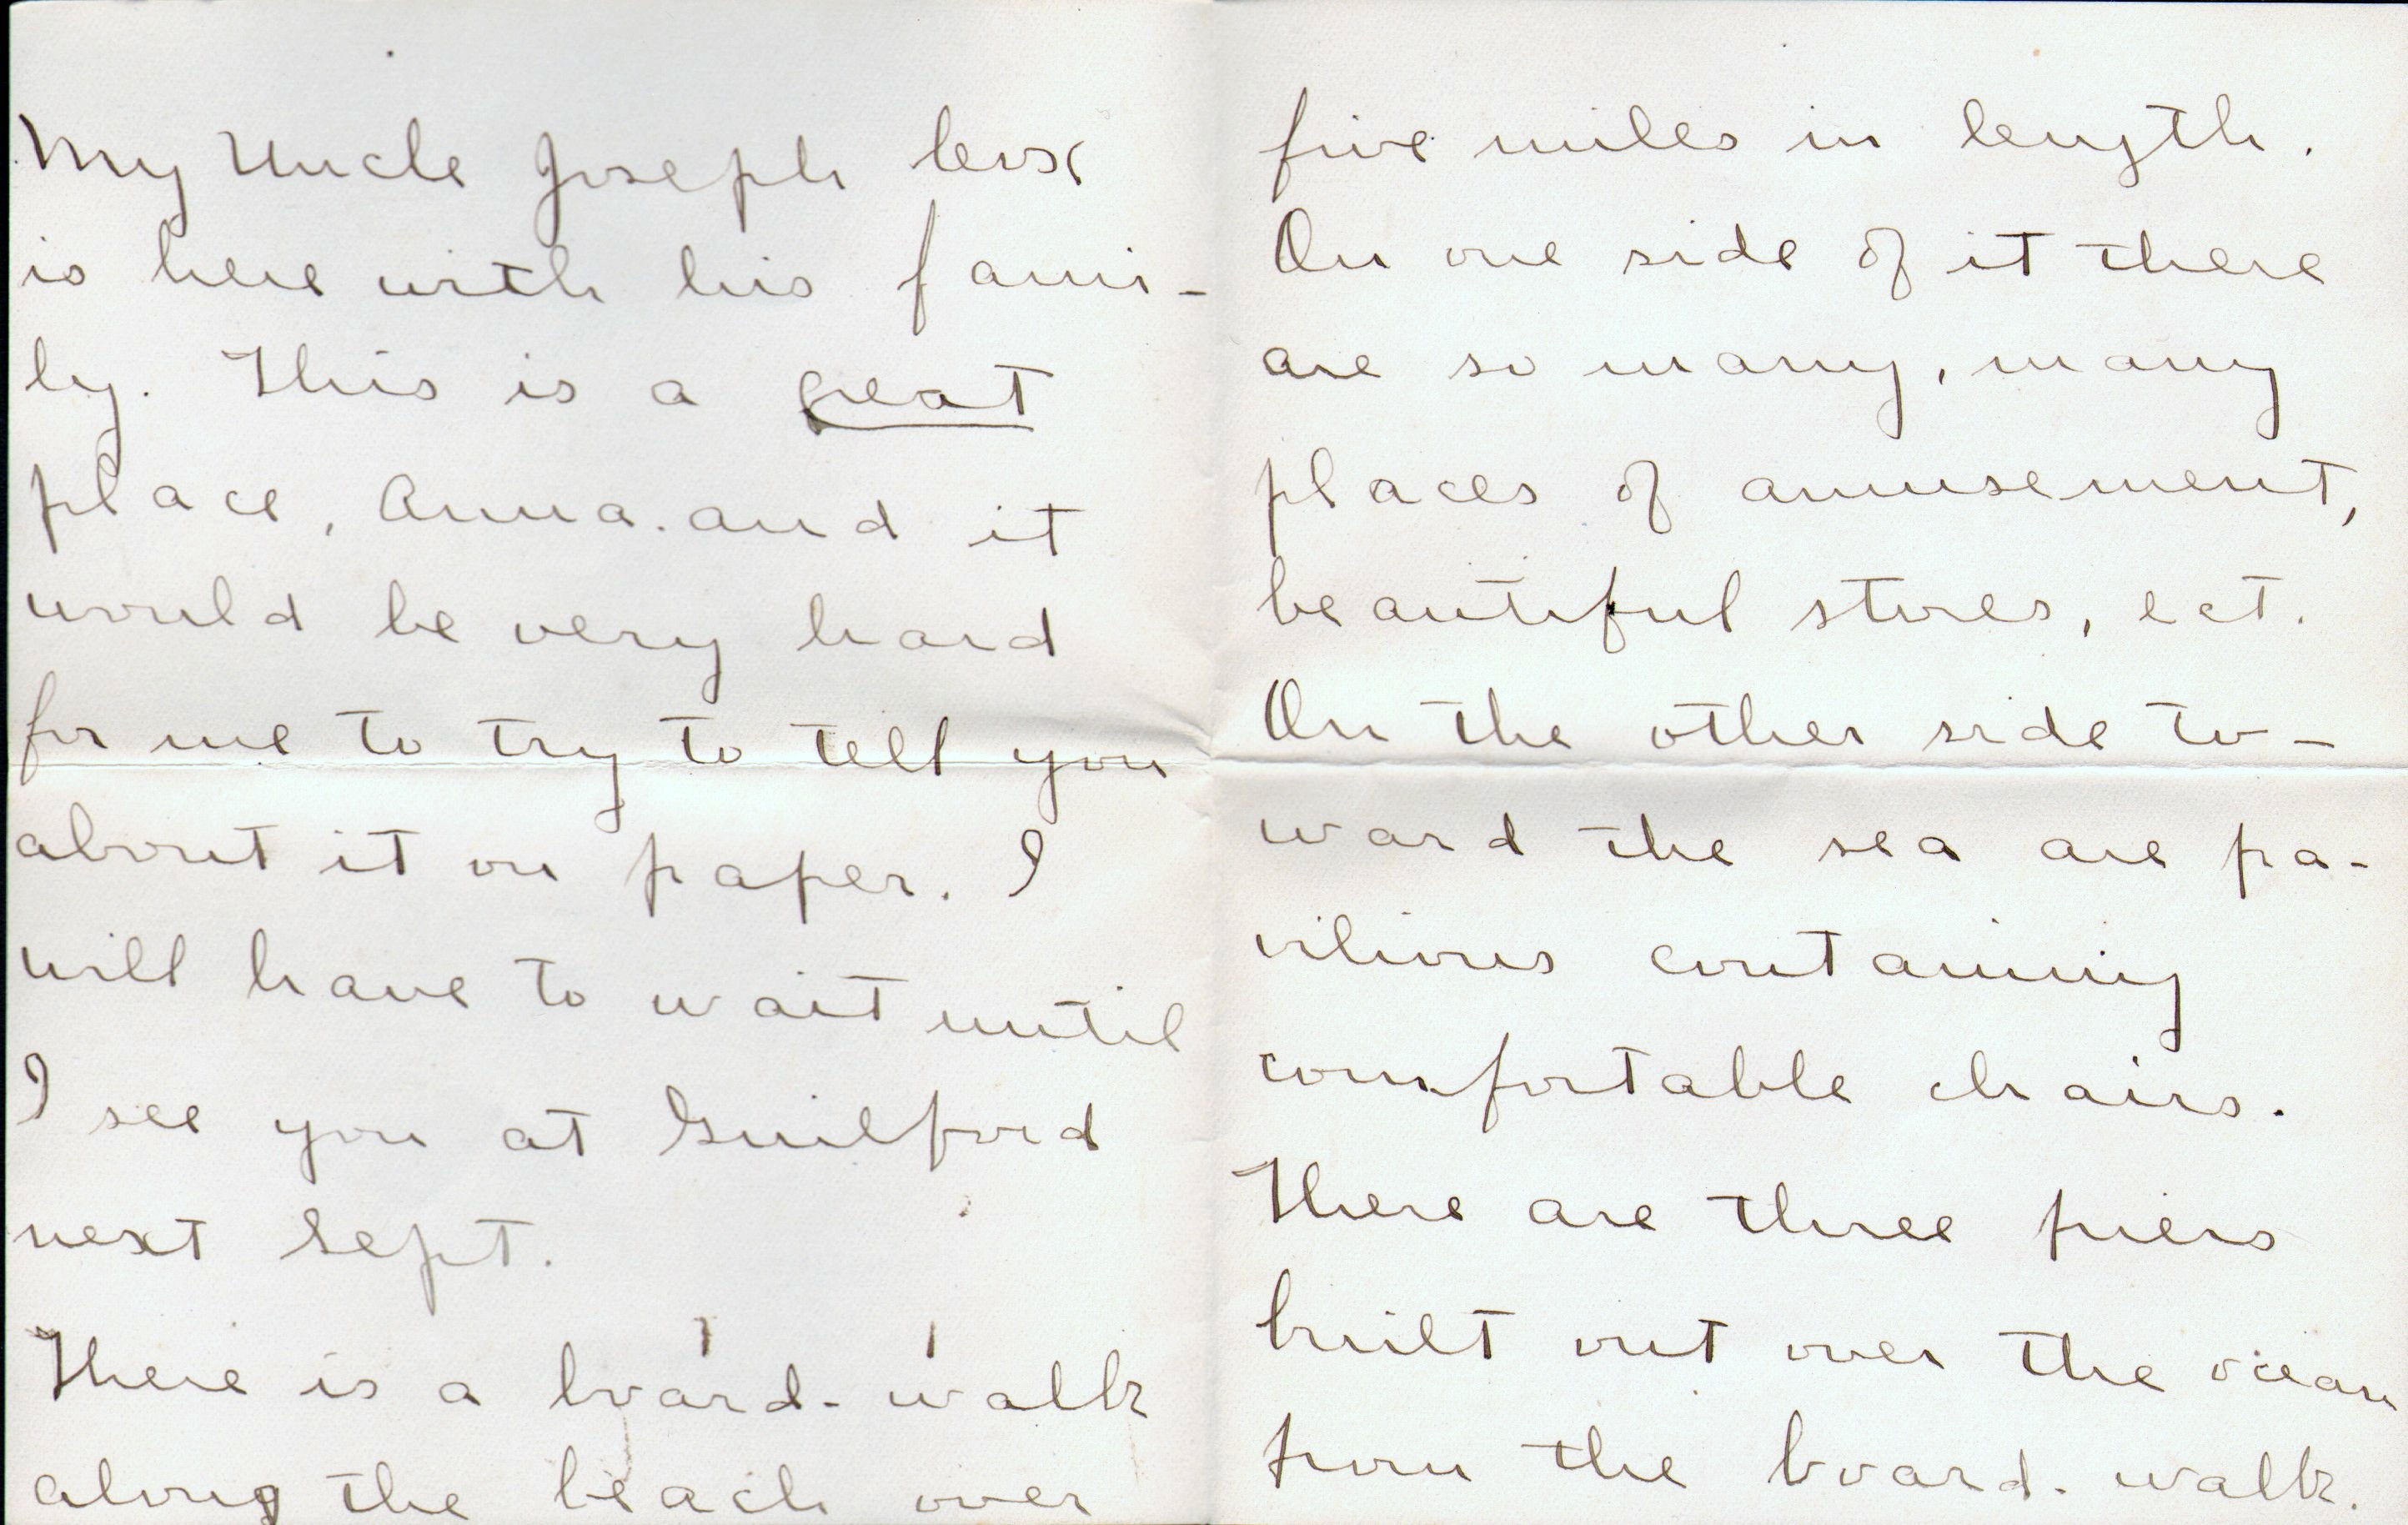 My Uncle Joseph
is here with his fami-
ly. This is a great
place, Anna. and it
would be very hard
for me to try to tell you
about it on paper. I
will have to wait until
I see you at Guilford
next Sept.
There is a board-walk
along the beach over
five miles in length.
On one side of it there
are so many, many
places of amusement,
beautiful stores, ect.
On the other side to-
ward the sea are pa-
vilions containing
comfortable chairs.
There are three piers
built out over the ocean
from the board-walk.